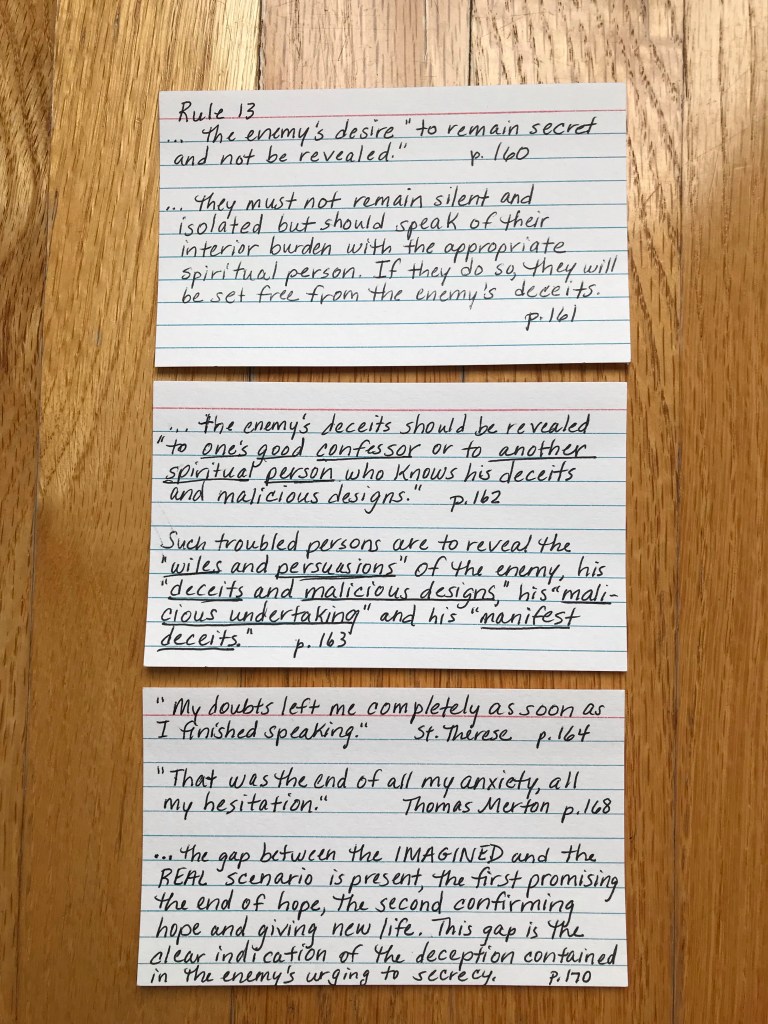 Rule 13
... the enemy's desire "to remain secret
and not be revealed." p. 160
... they must not remain silent and
isolated but should speak of their
interior burden with the appropriate
spiritual person. If they do so, they will
be set free from the enemy's deceits.
p. 161
... the enemy's deceits should be revealed
"to one's good confessor or to another
spiritual person who knows his deceits
and malicious designs." p. 162
Such troubled persons are to reveal the
"wiles and persuasions" of the enemy, his
"deceits and malicious designs," his "mali-
cious undertaking" and his "manifest
deceits." p. 163
"My doubts left me completely as soon as
I finished speaking." St. Thérèse p. 164
"That was the end of all my anxiety, all
my hesitation." Thomas Merton p. 168
... the gap between the IMAGINED and the
REAL scenario is present, the first promising
the end of hope, the second confirming
hope and giving new life. This gap is the
clear indication of the deception contained
in the enemy's urging to secrecy. p. 170